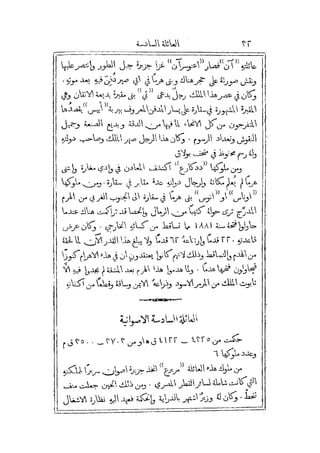 ٣٢ العائلة السادسة
عائلته "آن" فصار "اعتوسرآن" غزا جزيرة جبل الطور وانتصر عليها
ونقش صورته على حجر هناك وبنى هرماً في أبي صير دُفن فيه بعد موته.
وكان في عصر هذا الملك رجل يدعى "تي" بنى مقبرة بديعة الاتقان وهي
المقبرة المشهورة في سقارة على يسار المدفن المعروف بتربة "أبيس" يقصدها
المتفرجون من كل الانحاء لما فيها من الدقة وبديع الصنعة وجميل
النقوش وتعداد الرسوم. وكان هذا الرجل صهر الملك وصاحب دولته
وله رسم محفوظ في متحف بولاق
ومن ملوكها "ددكارع" اكتشف المعادن في وادي مغارة وابتنى
هرماً لم يُعلم مكانه ولرجال دولته عدة مقابر في سقارة. ومن ملوكها
"اوناس" أو "انوس" بنى هرماً في سقارة الى الجنوب الغربي من الهرم
المدرّج ترى حوله كثيباً من الرمال والحصا قد تراكمت هناك عندما
حاولوا فتحه سنة ١٨٨١ مما تساقط من كسائه الخارجي. وكان عرض
قاعدته ٢٢٠ قدماً وارتفاعه ٦٢ قدماً ولا يبلغ هذا القدر الآن لما لحقه
من الهدم والتساقط وذلك لانهم كانوا يعتقدون ان في هذه الاهرام كنوزاً
فيحاولون فتحها هدماً. ولما هدموا هذا الهرم بعد المشقة لم يجدوا فيه الّا
تابوت الملك من المرمر الاسود وذراعه الايمن وساقه وقطعاً من اكفانه
العائلة السادسة الاصوانية
حكمت من ٤٣٢٥ – ٤١٢٢ ق ه أو من ٣٧٠٣ – ٣٥٠٠ ق م
وعدد ملوكها ٦
من ملوك هذه العائلة "مريرع" اتخذ جزيرة اصوان سريراً لملكته
التي كانت شاملة لسائر القطر المصري. ومن ذلك الحين جعلت منف
تنحط. وكان له وزير اشتهر بالدراية والحكمة فعهد اليه نظارة الاشغال